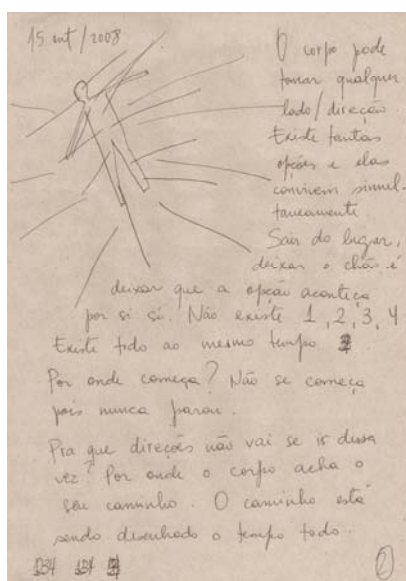 15 out/2008
O corpo pode
tomar qualquer
lado/direção.
Existe tantas
opções e elas
convivem simul-
taneamente
Sair do lugar,
deixar o chão é
deixar que a opção aconteça
por si só. Não existe 1, 2, 3, 4
Existe tudo ao mesmo tempo
Por onde começa? Não se começa
pois nunca parou.
Pra que direções não vai se ir dessa
vez? Por onde o corpo acha o
seu caminho. O caminho está
sendo desenhado o tempo todo.
2